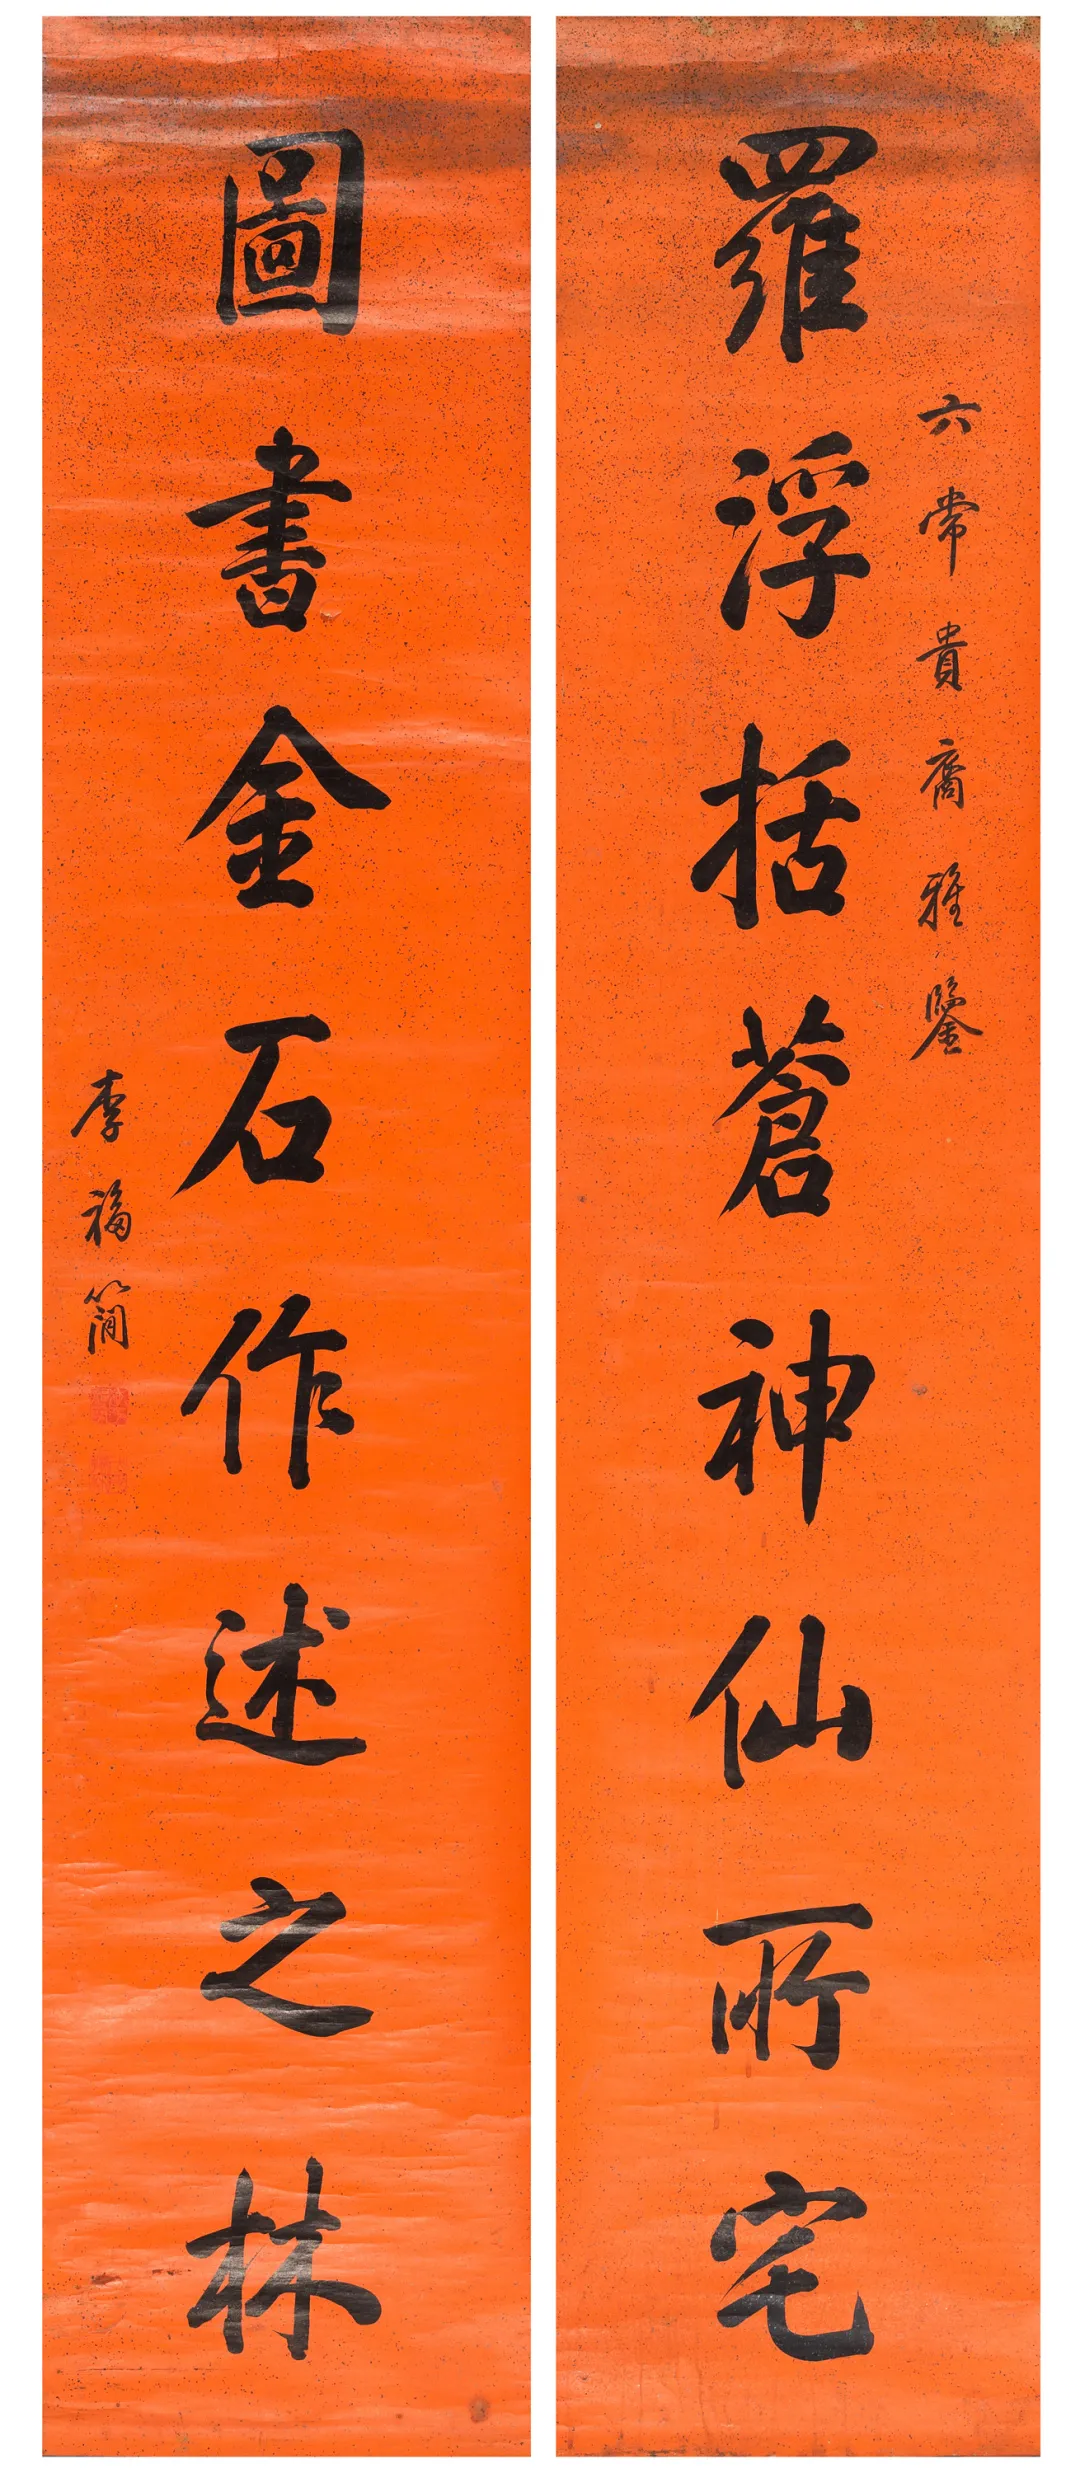 六常貴裔雅鑒
羅浮括蒼神仙所宅
圖書金石作述之林
李福簡